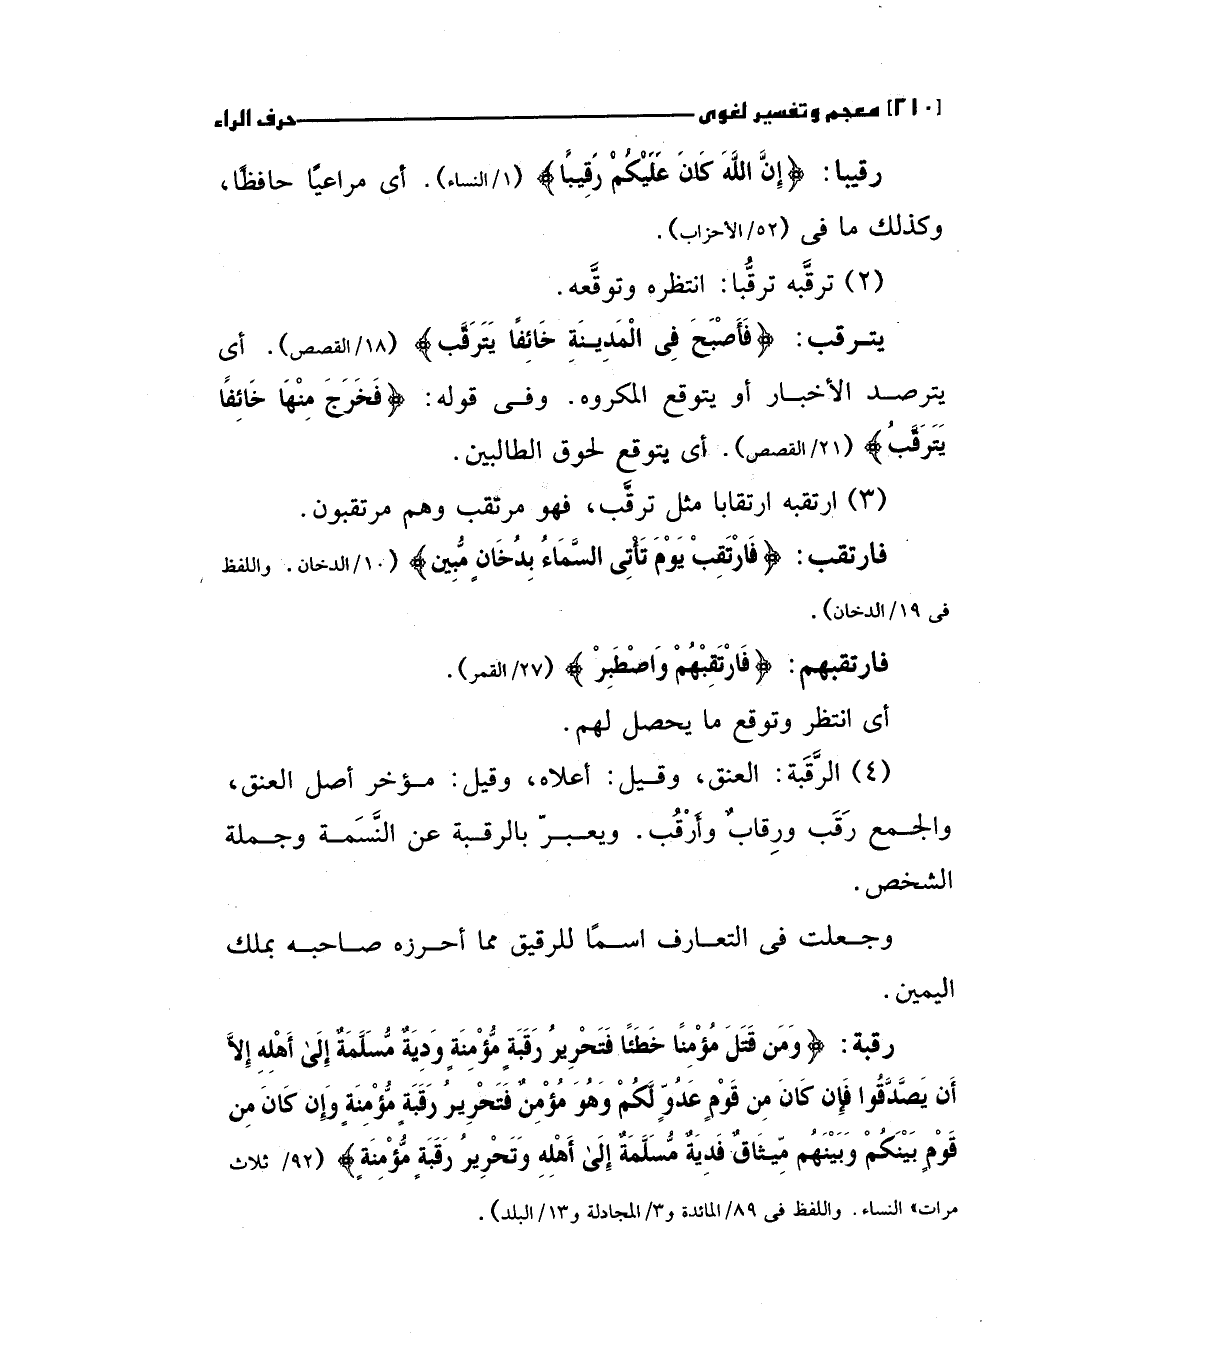 [٢١٠] معجم وتفسير لغوى ــــــــ حرف الراء
رقيبا: ﴿إِنَّ اللَّهَ كَانَ عَلَيْكُمْ رَقِيبًا﴾ (١/النساء). أى مراعيًا حافظًا،
وكذلك ما فى (٥٢/الأحزاب).
(٢) ترقَّبه ترقُّبا: انتظره وتوقَّعه.
يترقب: ﴿فَأَصْبَحَ فِى الْمَدِينَةِ خَائِفًا يَتَرَقَّب﴾ (١٨/القصص). أى
يترصد الأخبار أو يتوقع المكروه. وفى قوله: ﴿فَخَرَجَ مِنْهَا خَائِفًا
يَتَرَقَّبُ﴾ (٢١/القصص). أى يتوقع لحوق الطالبين.
(٣) ارتقبه ارتقابا مثل ترقَّب، فهو مرتقب وهم مرتقبون.
فارتقب: ﴿فَارْتَقِبْ يَوْمَ تَأْتِى السَّمَاءُ بِدُخَانٍ مُّبِين﴾ (١٠/الدخان. واللفظ
فى ١٩/الدخان).
فارتقبهم: ﴿فَارْتَقِبْهُمْ وَاصْطَبِرْ﴾ (٢٧/القمر).
أى انتظر وتوقع ما يحصل لهم.
(٤) الرَّقَبة: العنق، وقيل: أعلاه، وقيل: مؤخر أصل العنق،
والجمع رَقَب ورِقابٌ وأَرْقُب. ويعبرّ بالرقبة عن النَّسَمة وجملة
الشخص.
وجعلت فى التعارف اسمًا للرقيق مما أحرزه صاحبه بملك
اليمين.
رقبة: ﴿وَمَن قَتَلَ مُؤْمِنًا خَطَئًا فَتَحْرِيرُ رَقَبَةٍ مُّؤْمِنَةٍ وَدِيَةٌ مُّسَلَّمَةٌ إِلَىٰ أَهْلِهِ إِلاَّ
أَن يَصَّدَّقُوا فَإِن كَانَ مِن قَوْمٍ عَدُوٍّ لَّكُمْ وَهُوَ مُؤْمِنٌ فَتَحْرِيرُ رَقَبَةٍ مُّؤْمِنَةٍ وَإِن كَانَ مِن
قَوْمٍ بَيْنَكُمْ وَبَيْنَهُم مِّيثَاقٌ فَدِيَةٌ مُّسَلَّمَةٌ إِلَىٰ أَهْلِهِ وَتَحْرِيرُ رَقَبَةٍ مُّؤْمِنَةٍ﴾ (٩٢/ ثلاث
مرات» النساء. واللفظ فى ٨٩/المائدة و٣/المجادلة و١٣/البلد).